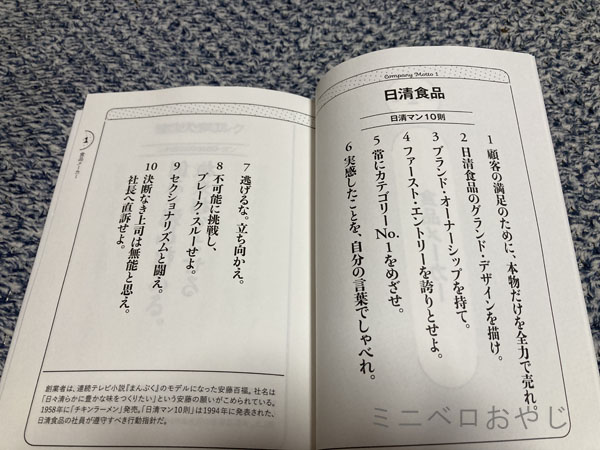 Company Motto 1
日清食品
日清マン10則
1 顧客の満足のために、本物だけを全力で売れ。
2 日清食品のグランド・デザインを描け。
3 ブランド・オーナーシップを持て。
4 ファースト・エントリーを誇りとせよ。
5 常にカテゴリーNo.1をめざせ。
6 実感したことを、自分の言葉でしゃべれ。
7 逃げるな。立ち向かえ。
8 不可能に挑戦し、
ブレーク・スルーせよ。
9 セクショナリズムと闘え。
10 決断なき上司は無能と思え。
社長へ直訴せよ。
創業者は、連続テレビ小説『まんぷく』のモデルになった安藤百福。社名は
「日々清らかに豊かな味をつくりたい」という安藤の願いがこめられている。
1958年に「チキンラーメン」発売。「日清マン10則」は1994年に発表された、
日清食品の社員が遵守すべき行動指針だ。
1
ミニベロおやじ